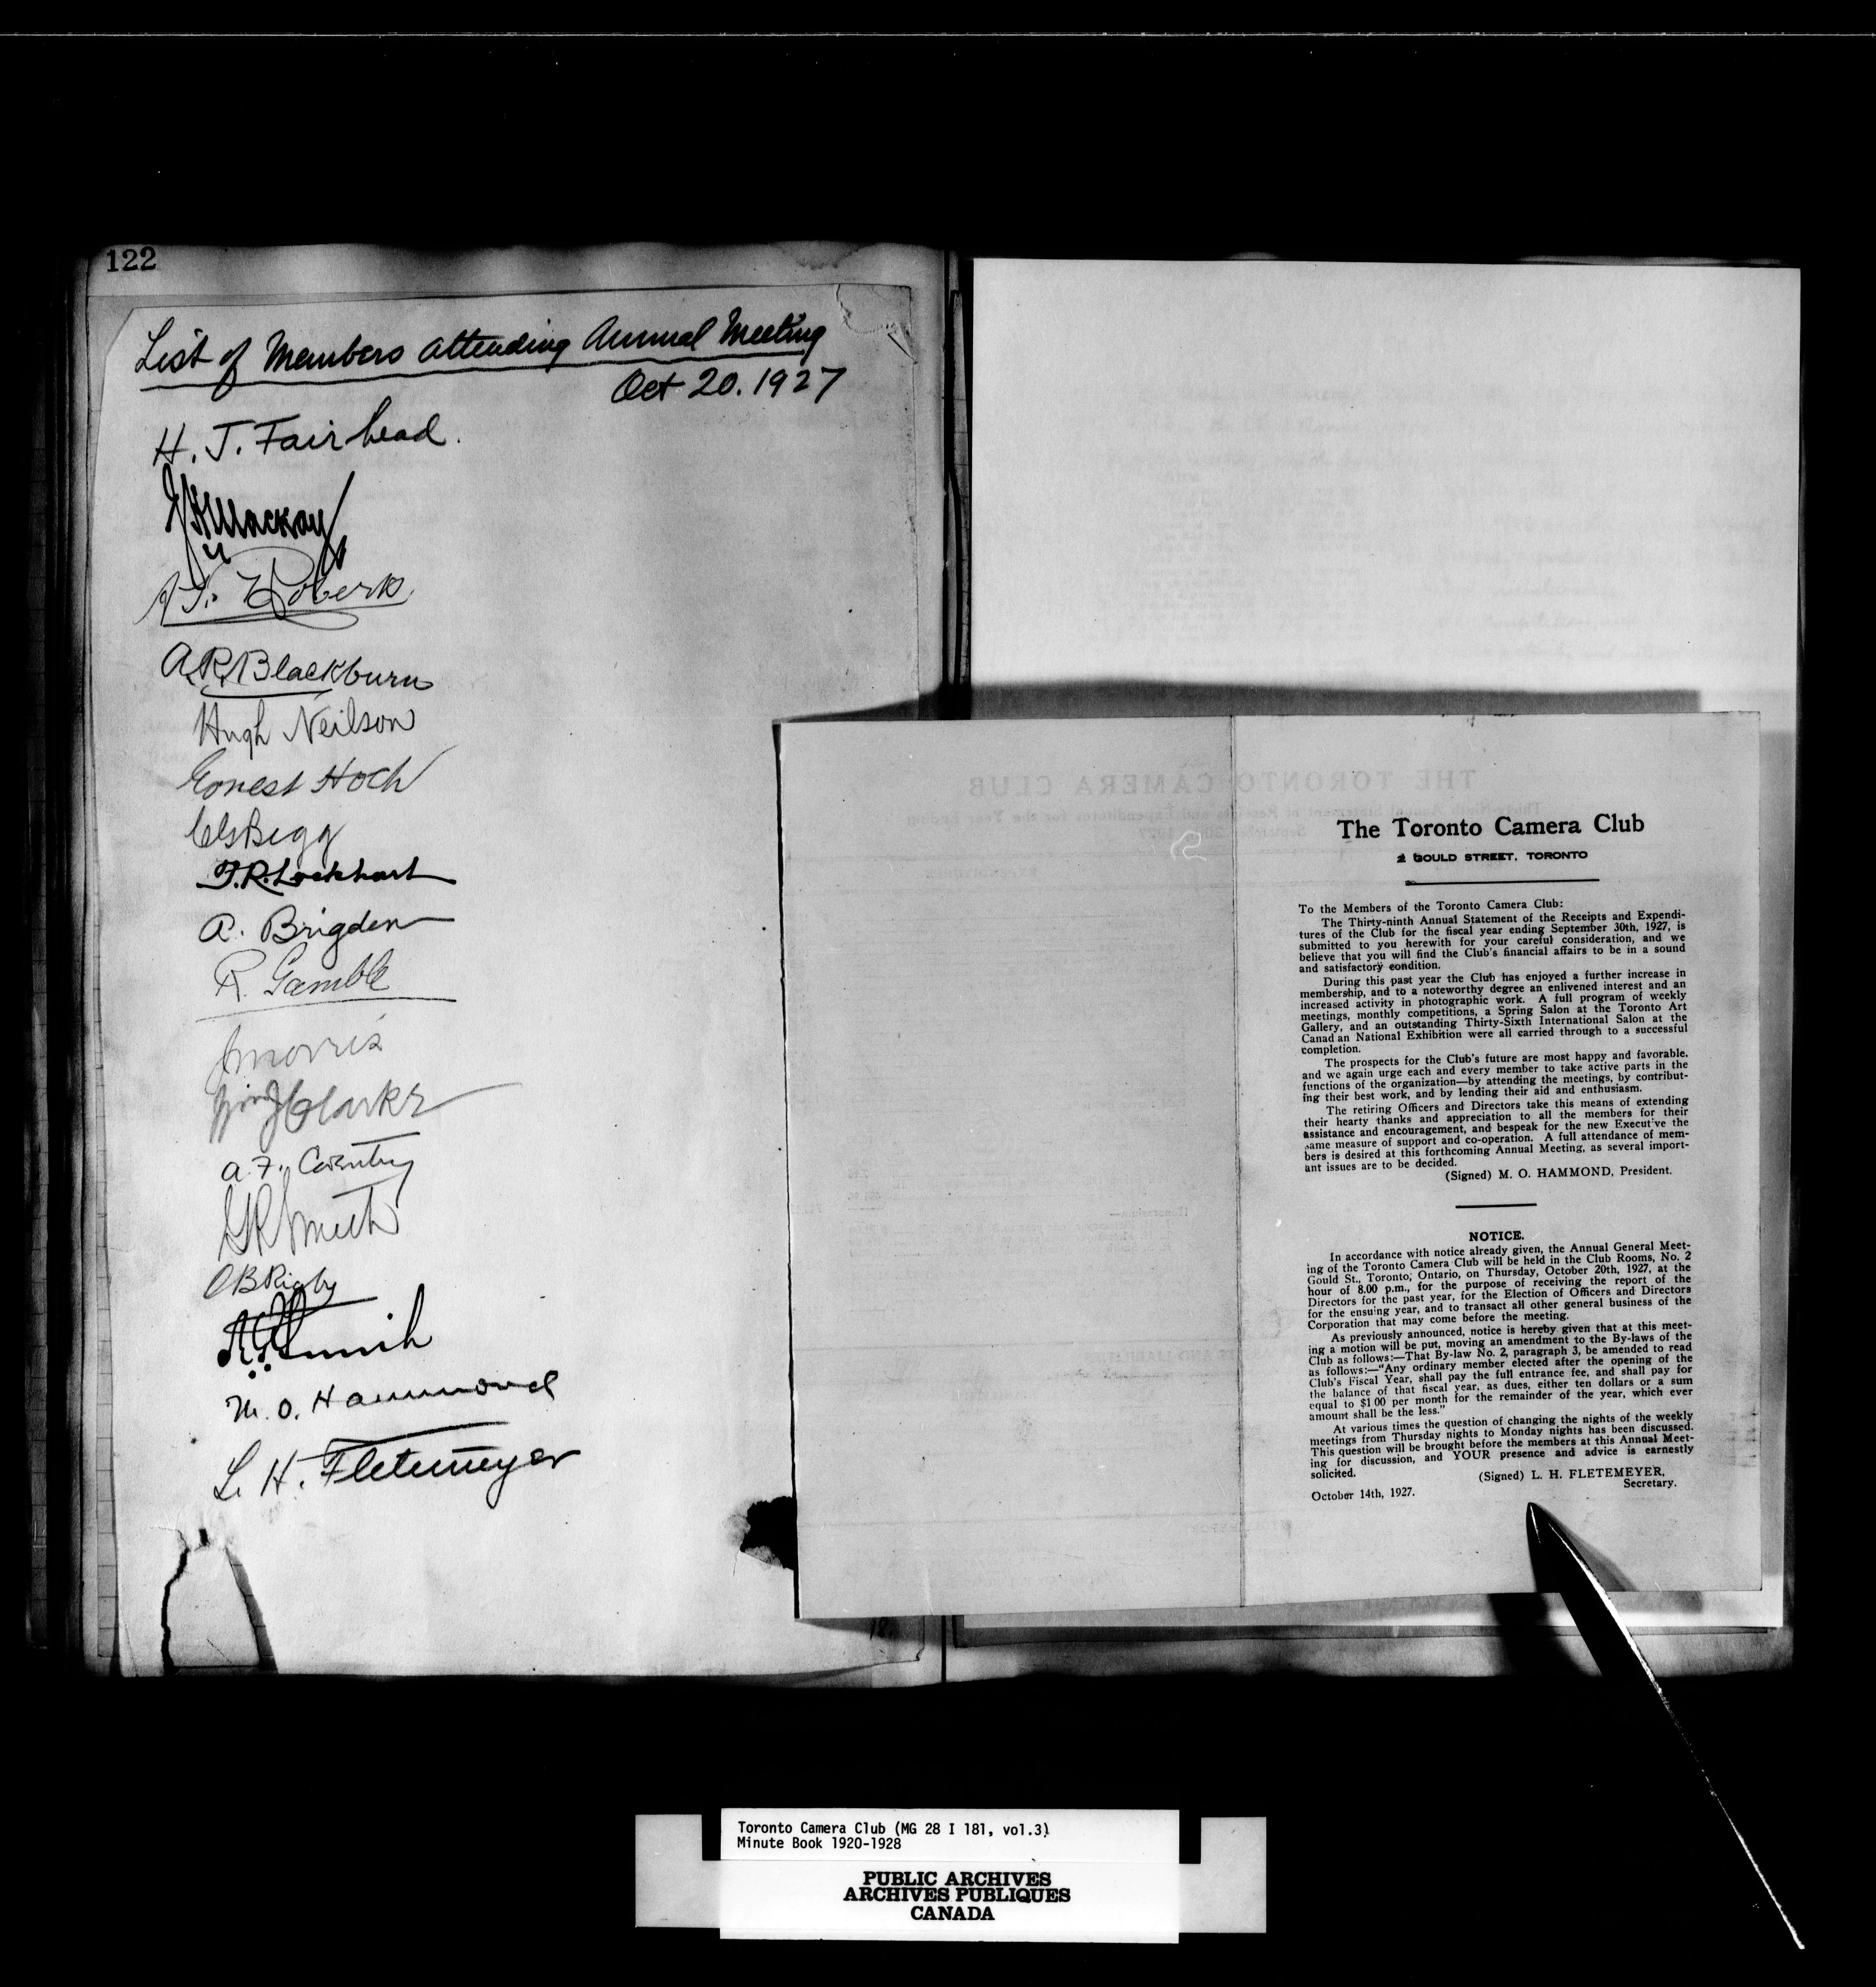 122
List of Members attending Annual Meeting
Oct 20. 1927
H. J. Fairhead.
Mackay
Roberts
A. R. Blackburn
Hugh Neilson
Ernest Hoch
Begg
J. R. Lockhart
A. Brigden
R. Gamble
Morris
Clarke
A. F. Coventry
Smith
Rigby
M. O. Hammond
L. H. Fletemeyer
18.
The Toronto Camera Club
2 GOULD STREET, TORONTO
To the Members of the Toronto Camera Club:
The Thirty-ninth Annual Statement of the Receipts and Expendi-
tures of the Club for the fiscal year ending September 30th, 1927, is
submitted to you herewith for your careful consideration, and we
believe that you will find the Club's financial affairs to be in a sound
and satisfactory condition.
During this past year the Club has enjoyed a further increase in
membership, and to a noteworthy degree an enlivened interest and an
increased activity in photographic work. A full program of weekly
meetings, monthly competitions, a Spring Salon at the Toronto Art
Gallery, and an outstanding Thirty-Sixth International Salon at the
Canad an National Exhibition were all carried through to a successful
completion.
The prospects for the Club's future are most happy and favorable,
and we again urge each and every member to take active parts in the
functions of the organization—by attending the meetings, by contribut-
ing their best work, and by lending their aid and enthusiasm.
The retiring Officers and Directors take this means of extending
their hearty thanks and appreciation to all the members for their
assistance and encouragement, and bespeak for the new Executive the
same measure of support and co-operation. A full attendance of mem-
bers is desired at this forthcoming Annual Meeting, as several import-
ant issues are to be decided.
(Signed) M. O. HAMMOND, President.
NOTICE.
In accordance with notice already given, the Annual General Meet-
ing of the Toronto Camera Club will be held in the Club Rooms, No. 2
Gould St., Toronto, Ontario, on Thursday, October 20th, 1927, at the
hour of 8.00 p.m., for the purpose of receiving the report of the
Directors for the past year, for the Election of Officers and Directors
for the ensuing year, and to transact all other general business of the
Corporation that may come before the meeting.
As previously announced, notice is hereby given that at this meet-
ing a motion will be put, moving an amendment to the By-laws of the
Club as follows:—That By-law No. 2, paragraph 3, be amended to read
as follows:—"Any ordinary member elected after the opening of the
Club's Fiscal Year, shall pay the full entrance fee, and shall pay for
the balance of that fiscal year, as dues, either ten dollars or a sum
equal to $1 00 per month for the remainder of the year, which ever
amount shall be the less."
At various times the question of changing the nights of the weekly
meetings from Thursday nights to Monday nights has been discussed.
This question will be brought before the members at this Annual Meet-
ing for discussion, and YOUR presence and advice is earnestly
solicited.
(Signed) L. H. FLETEMEYER,
Secretary.
October 14th, 1927.
Toronto Camera Club (MG 28 I 181, vol.3)
Minute Book 1920-1928
PUBLIC ARCHIVES
ARCHIVES PUBLIQUES
CANADA